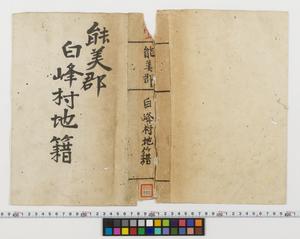 能美郡
白峰村地籍
能美郡
白峰村地籍